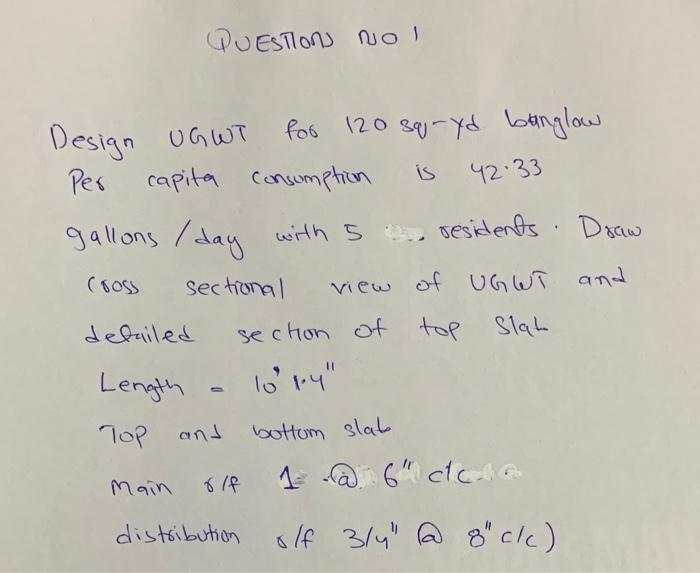 QUESTION NO 1
Design UGWT for 120 sq-yd banglow
Per capita consumption is 42.33
gallons /day with 5 residents. Draw
cross sectional view of UGWT and
detailed section of top slab
Length = 10' 1.4"
Top and bottom slab
Main r/f 1 @ 6" c/c
distribution r/f 3/4" @ 8" c/c)